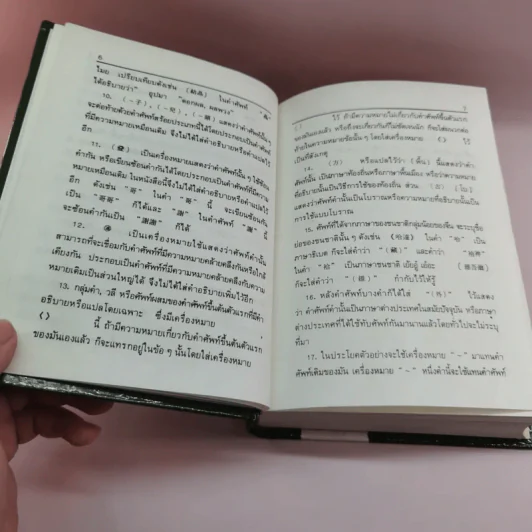 6
ไมอ เปรียบเทียบดังเช่น (船长) ในคำศัพท์ "船"
ได้อธิบายว่า" อุปมา "ดอกผล, ผลพวง"
10. (-子), (-兒), (-頭) แสดงว่าคำศัพท์นั้น
จะต่อท้ายด้วยคำศัพท์สร้อยประเภทนี้ได้โดยประกอบเป็นคำศัพท์
ที่มีความหมายเหมือนเดิม จึงไม่ได้ใส่คำอธิบายหรือคำแปลไว้
อีก
11. เป็นเครื่องหมายแสดงว่าคำศัพท์นั้น ๆ ใช้ซ้อน
คำกัน หรือเขียนซ้อนคำกันได้โดยประกอบเป็นคำศัพท์ที่มีความ
หมายเหมือนเดิม ในหนังสือนี้จึงไม่ได้ใส่คำอธิบายหรือคำแปลไว้
อีก ดังเช่น "哥" ในคำ "哥" นี้ จะเขียนซ้อนกัน
เป็น "哥哥" ก็ได้และ "謝" ในคำศัพท์ "謝" นี้
จะซ้อนคำกันเป็น "謝謝" ก็ได้
12. เป็นเครื่องหมายใช้แสดงว่าคำศัพท์นั้น
สามารถที่จะเชื่อมกับคำศัพท์ที่มีความหมายคล้ายคลึงกันหรือใกล้
เคียงกัน ประกอบเป็นคำศัพท์ที่มีความหมายคล้ายคลึงกันกับความ
หมายเดิมเป็นส่วนใหญ่ได้ จึงไม่ได้ใส่คำอธิบายเพิ่มไว้อีก
13. กลุ่มคำ, วลี หรือศัพท์ผสมของคำศัพท์ขึ้นต้นตัวแรกที่มีคำ
อธิบายหรือแปลโดยเฉพาะ ซึ่งมีเครื่องหมาย
〈〉 นี้ ถ้ามีความหมายเกี่ยวกับคำศัพท์ขึ้นต้นตัวแรก
ของมันเองแล้ว ก็จะแทรกอยู่ในข้อ ๆ นั้นโดยใส่เครื่องหมาย
7
ไว้ ถ้ามีความหมายไม่เกี่ยวกับคำศัพท์ขึ้นต้นตัวแรก
ของมันเองแล้ว หรือถึงจะเกี่ยวกันก็ไม่ชัดเจนนัก ก็จะใส่แทรกต่อ
ท้ายในความหมายข้อนั้น ๆ โดยใส่เครื่องหมาย ไว้
เป็นที่สังเกตุ
14. (方) หรือแปลไว้ว่า (พื้น) นี้แสดงว่าคำ
ศัพท์นั้น เป็นภาษาท้องถิ่นหรือภาษาพื้นเมือง หรือว่าความหมายที่
อธิบายนั้นเป็นวิธีการใช้ของท้องถิ่น ส่วน (古) (โบ)
แสดงว่าคำศัพท์ดำนั้นเป็นโบราณหรือความหมายที่อธิบายนั้นเป็น
การใช้แบบโบราณ
15. ศัพท์ที่ได้จากภาษาของชนชาติกลุ่มน้อยของจีน จะระบุชื่อ
ย่อของชนชาตินั้น ๆ ดังเช่น ในคำ เป็น
ภาษาธิเบต ก็จะใส่คำว่า (藏) และคำว่า
ในคำ เป็นภาษาชนชาติ
ก็จะใส่คำว่า กำกับไว้ให้รู้
16. หลังคำศัพท์บางคำก็ได้ใส่ (外) ไว้แสดง
ว่า คำศัพท์คำนั้นเป็นภาษาต่างประเทศในสมัยปัจจุบัน หรือภาษา
ต่างประเทศที่ได้ใช้ทับศัพท์กันมานานแล้วโดยทั่วไปจะไม่ระบุ
ที่มา
17. ในประโยคตัวอย่างจะใช้เครื่องหมาย "~" มาแทนคำ
ศัพท์เดิมของมัน เครื่องหมาย "~" หนึ่งคำนี้จะใช้แทนคำศัพท์